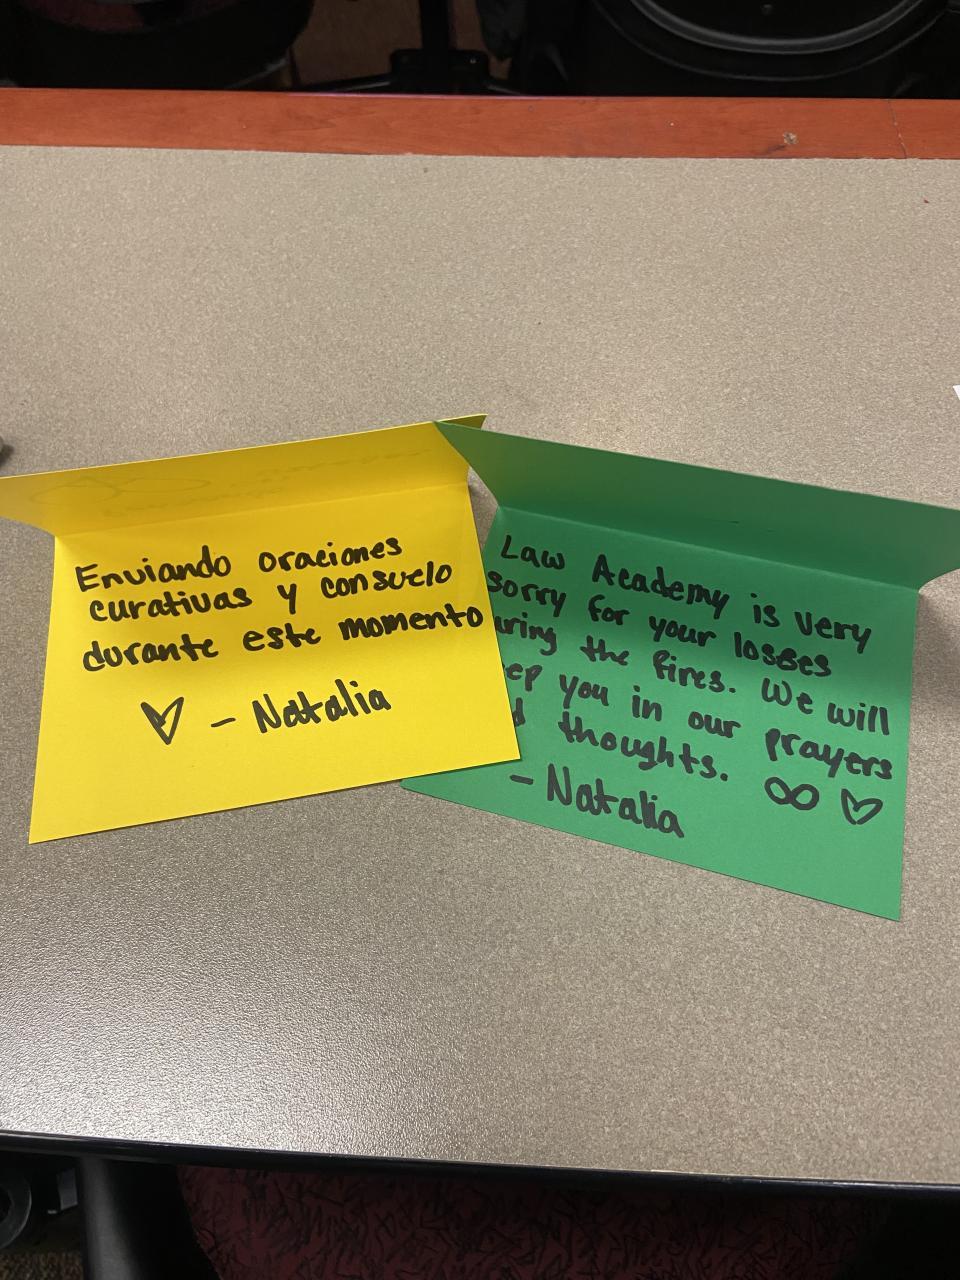 Enviando oraciones
curativas y consuelo
durante este momento
- Natalia
Law Academy is very
sorry for your losses
the fires. We will
you in our prayers
thoughts.
- Natalia